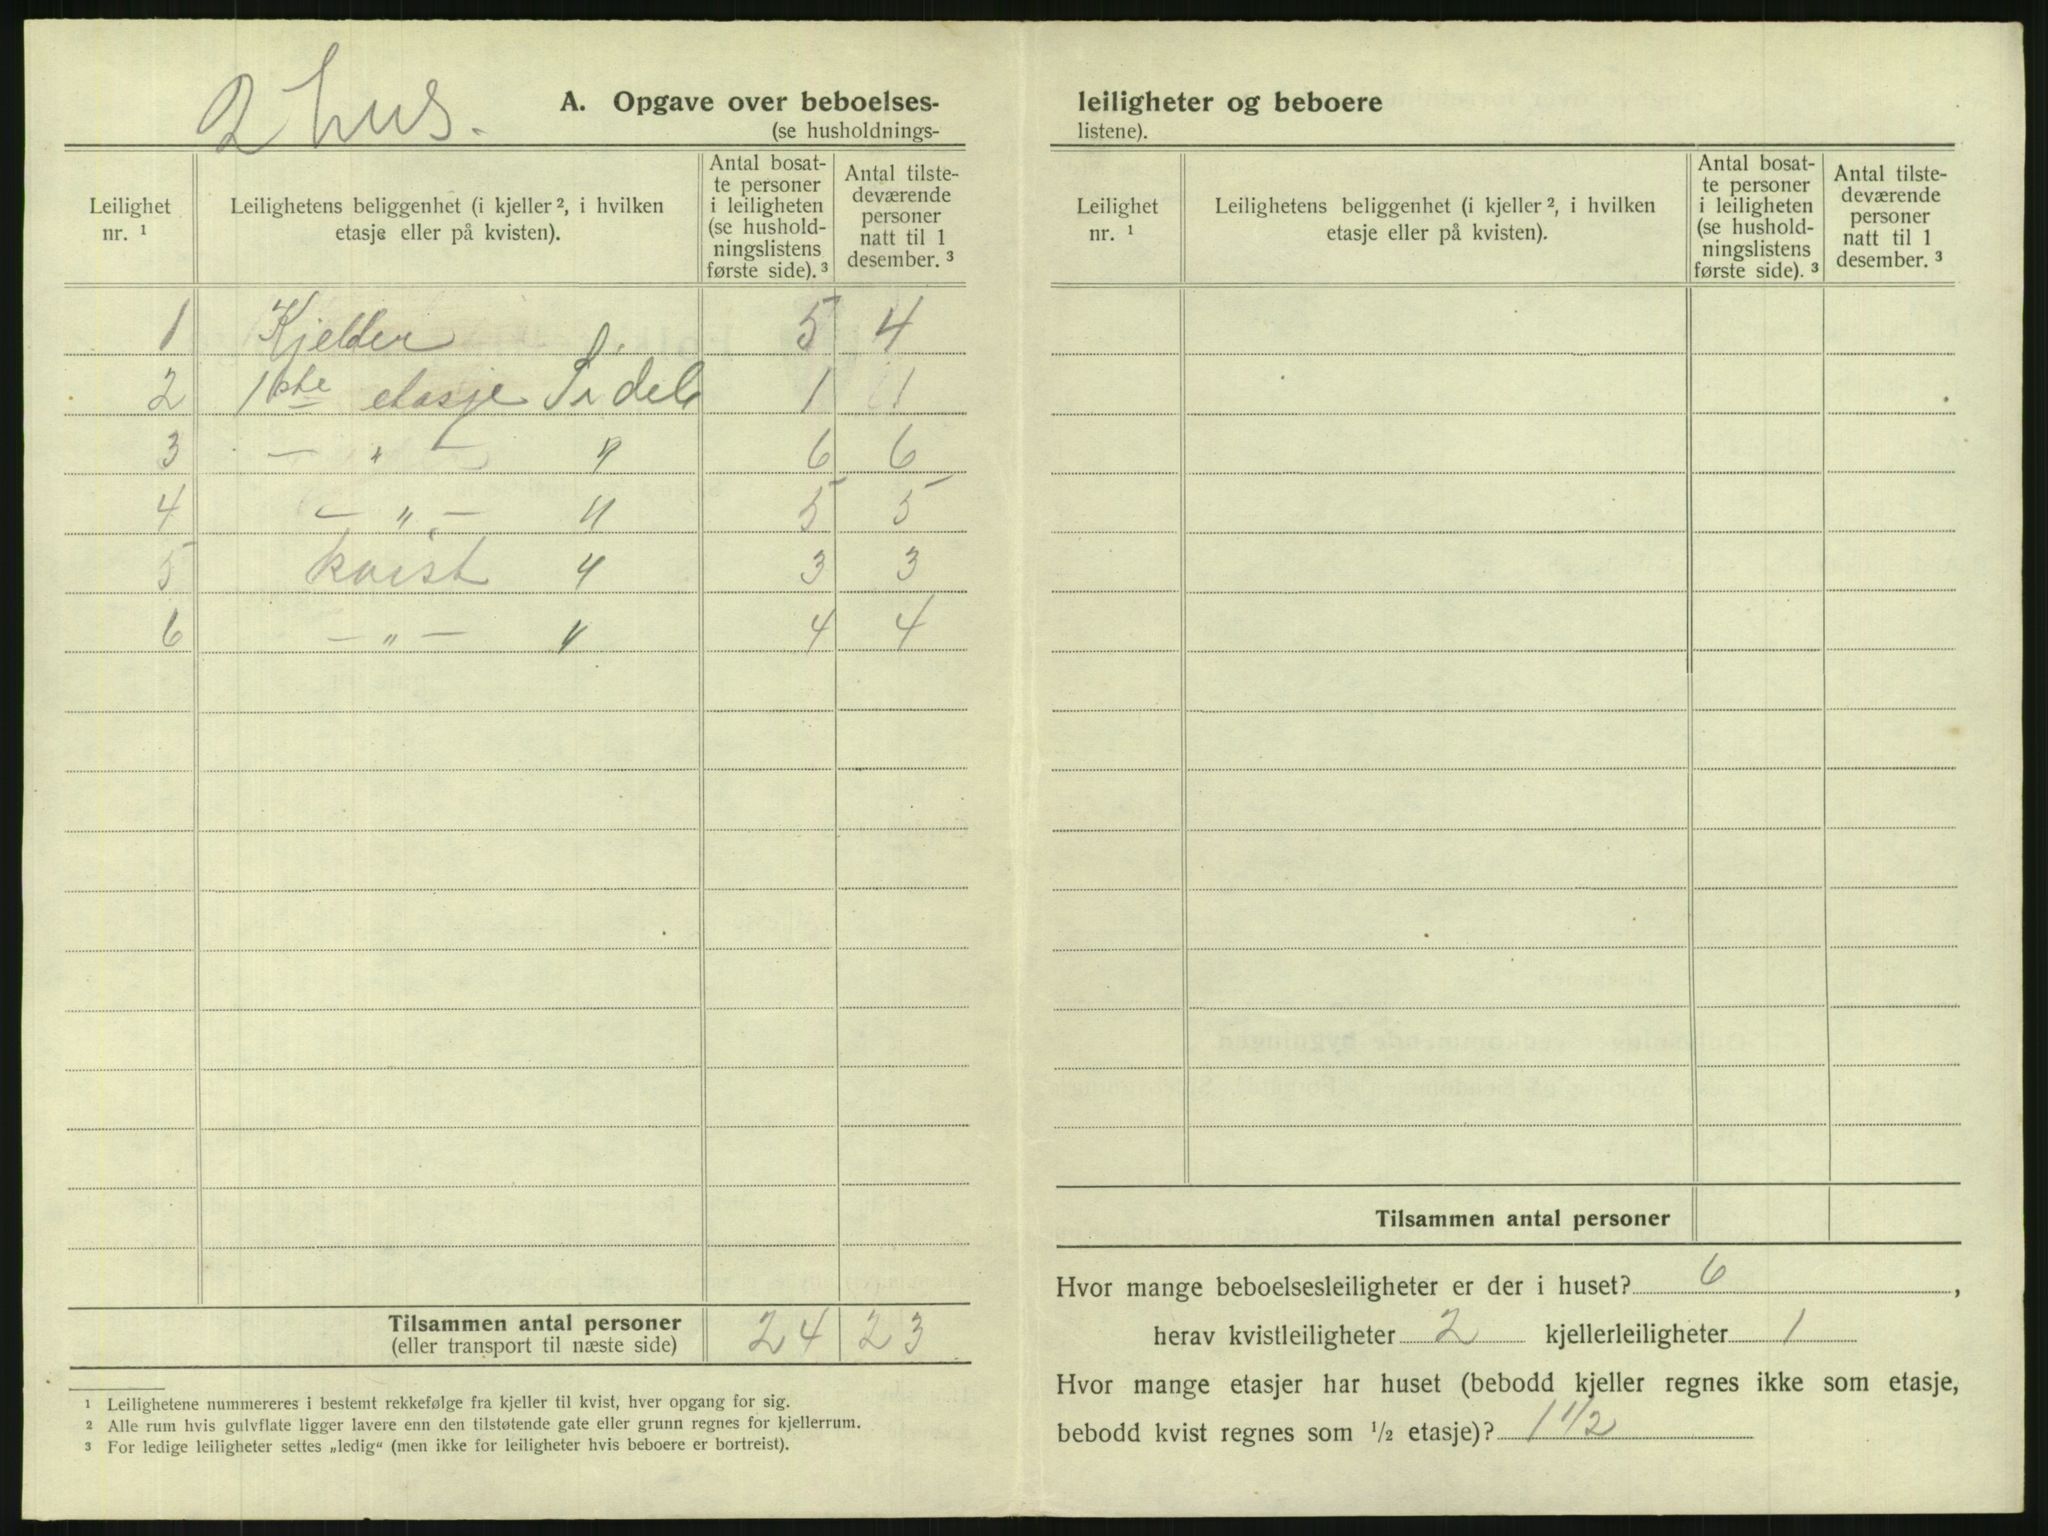 2 hus.
A. Opgave over beboelses-
(se husholdnings-
Leilighet nr. ¹
Leilighetens beliggenhet (i kjeller ², i hvilken etasje eller på kvisten).
Antal bosat-
te personer
i leiligheten
(se hushold-
ningslistens
første side). ³
Antal tilste-
deværende
personer
natt til 1
desember. ³
1 Kjelder 5 4
2 1ste etasje Sidel 1 1
3 — " — " 6 6
4 — " — " 5 5
5 kvist " 3 3
6 — " — " 4 4
Tilsammen antal personer 24 23
(eller transport til næste side)
¹ Leilighetene nummereres i bestemt rekkefølge fra kjeller til kvist, hver opgang for sig.
² Alle rum hvis gulvflate ligger lavere enn den tilstøtende gate eller grunn regnes for kjellerrum.
³ For ledige leiligheter settes „ledig“ (men ikke for leiligheter hvis beboere er bortreist).
leiligheter og beboere
listene).
Leilighet nr. ¹
Leilighetens beliggenhet (i kjeller ², i hvilken etasje eller på kvisten).
Antal bosat-
te personer
i leiligheten
(se hushold-
ningslistens
første side). ³
Antal tilste-
deværende
personer
natt til 1
desember. ³
Tilsammen antal personer
Hvor mange beboelsesleiligheter er der i huset? 6,
herav kvistleiligheter 2 kjellerleiligheter 1
Hvor mange etasjer har huset (bebodd kjeller regnes ikke som etasje,
bebodd kvist regnes som ½ etasje)? 1 1/2